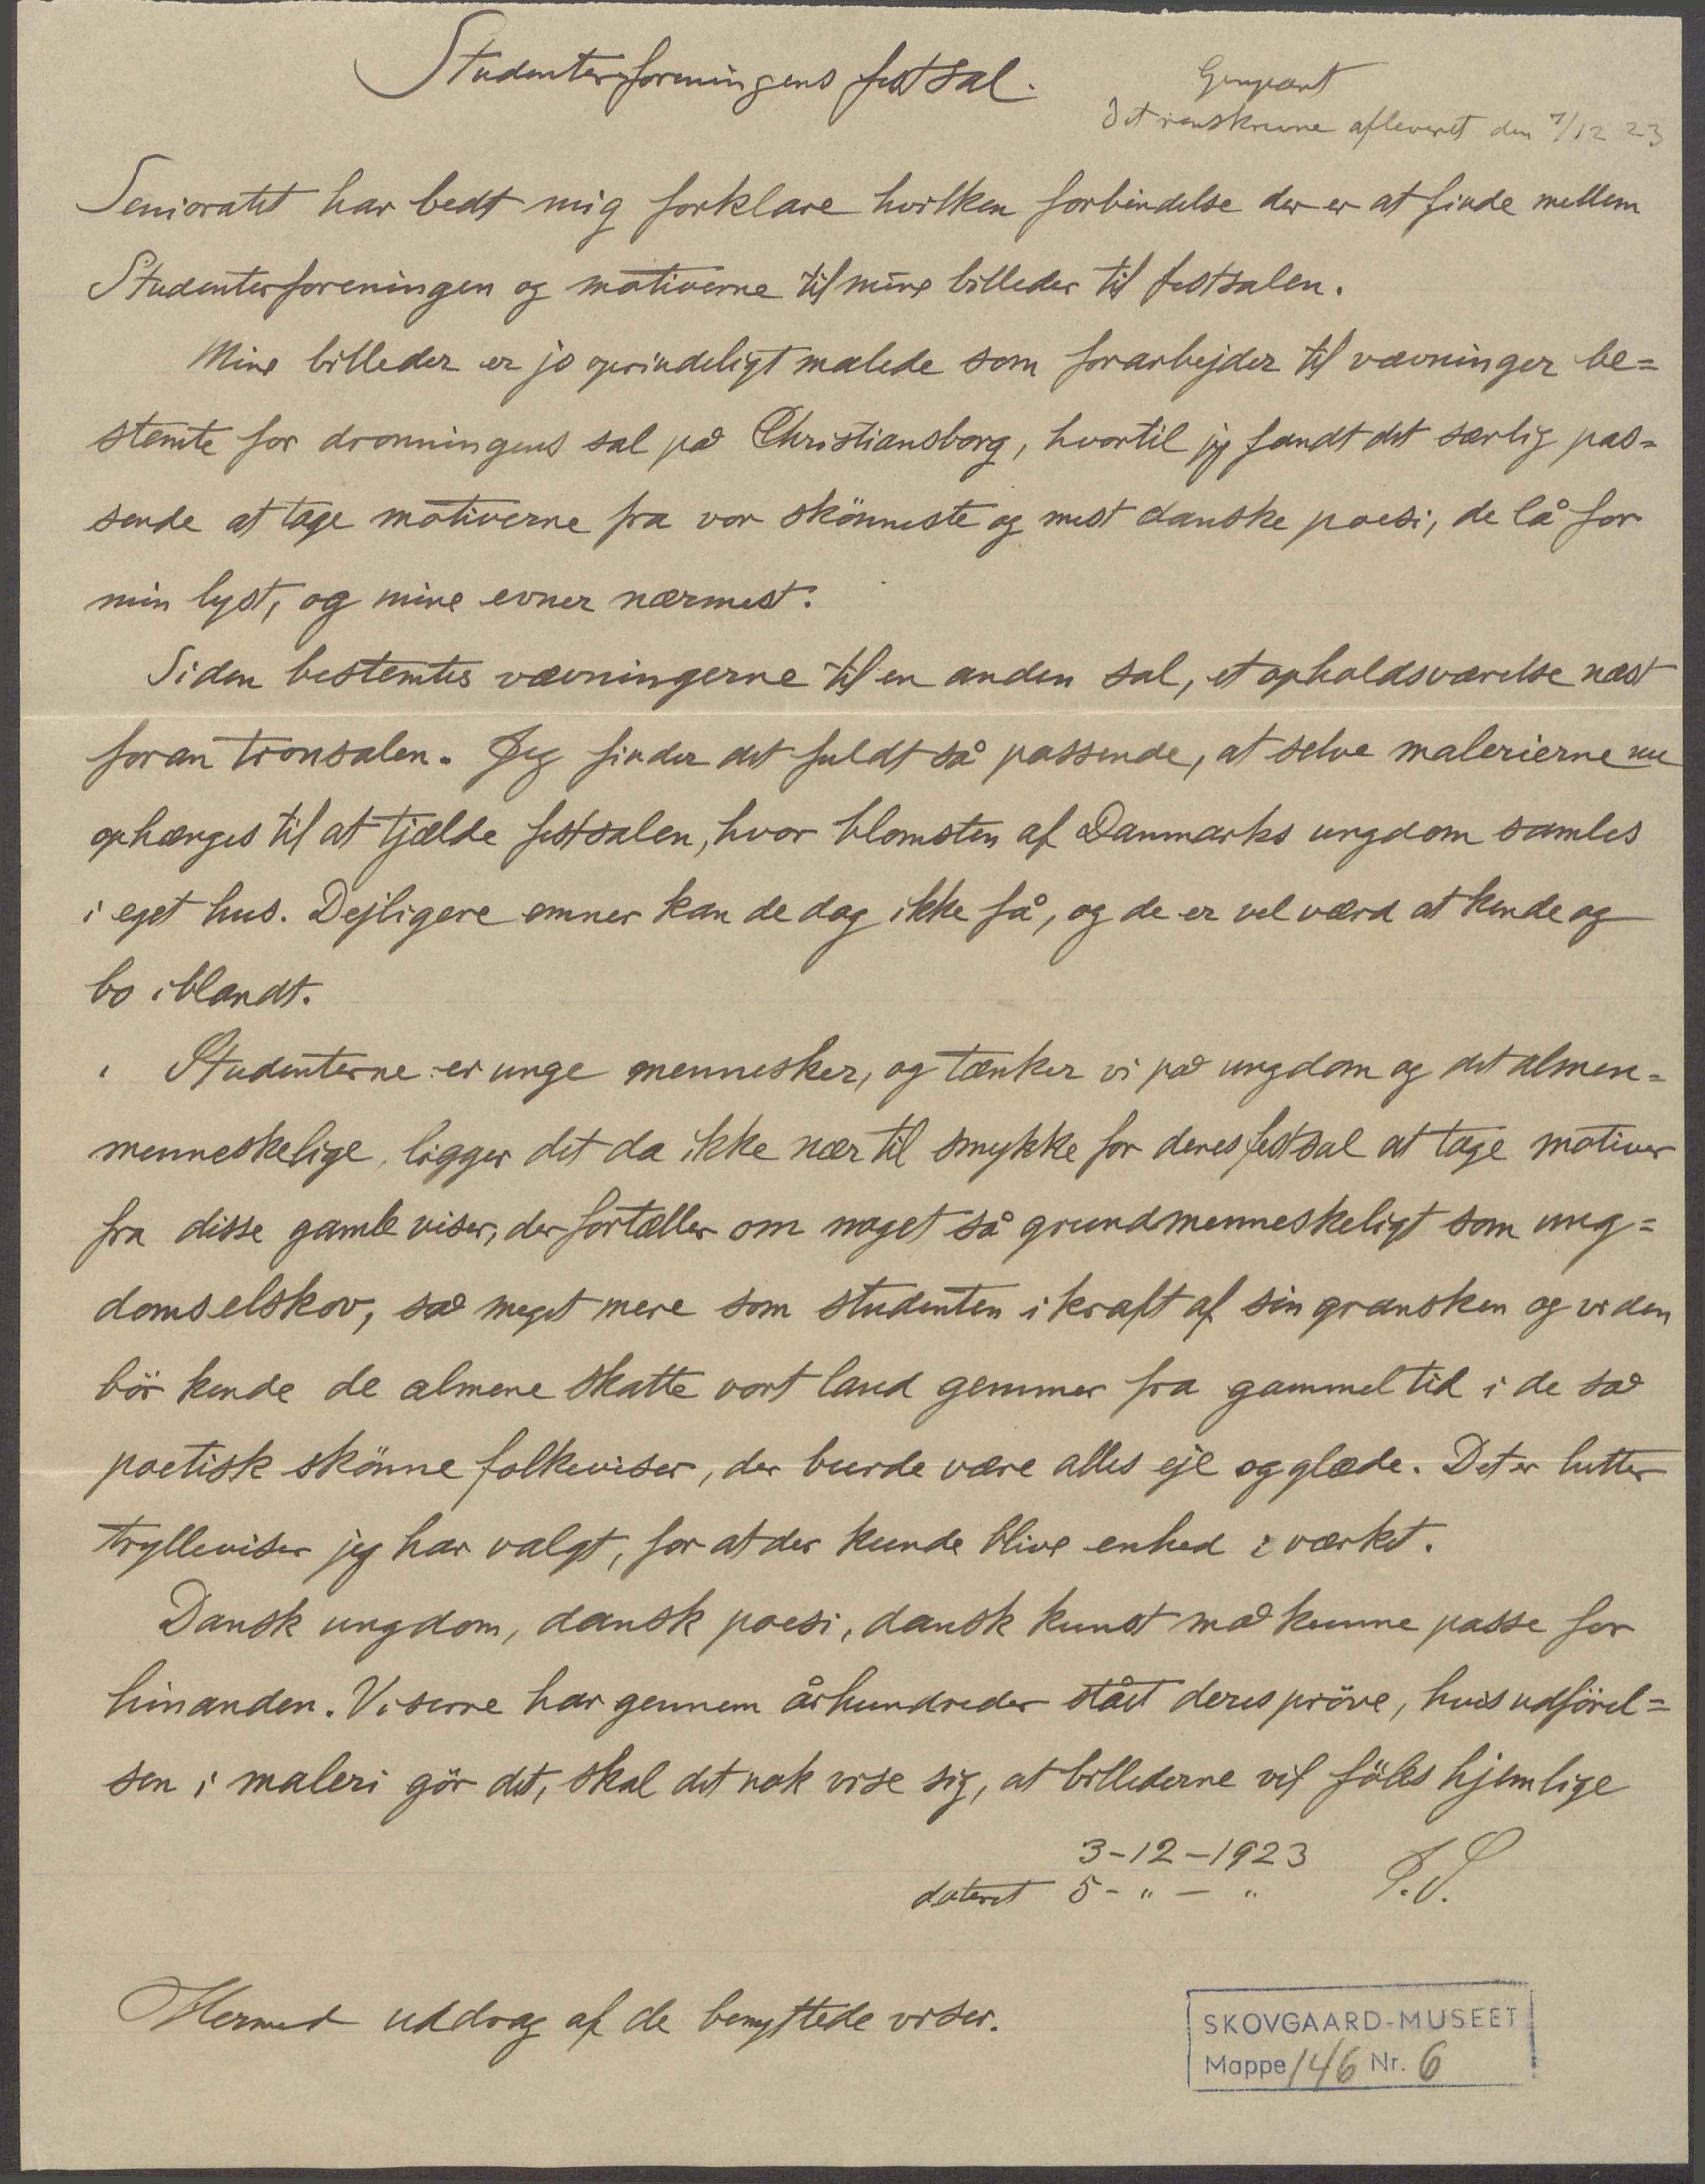 Studenterforeningens festsal.
Genpart
Det renskrevne afleveret den 7/12 23
Senioratet har bedt mig forklare hvilken forbindelse der er at finde mellem
Studenterforeningen og motiverne til mine billeder til festsalen.
Mine billeder er jo oprindeligt malede som forarbejder til vævninger be=
stemte for dronningens sal på Christiansborg, hvortil jeg fandt det særlig pas=
sende at tage motiverne fra vor skönneste og mest danske poesi, de lå for
min lyst, og mine evner nærmest.
Siden bestemtes vævningerne til en anden sal, et opholdsværelse næst
foran tronsalen. Jeg finder det fuldt så passende, at selve malerierne nu
ophænges til at tjælde festsalen, hvor blomsten af Danmarks ungdom samles
i eget hus. Dejligere emner kan de dog ikke få, og de er vel værd at kende og
bo iblandt.
Studenterne er unge mennesker, og tænker vi på ungdom og det almen=
menneskelige, ligger det da ikke nær til smykke for deres festsal at tage motiver
fra disse gamle viser, der fortæller om noget så grundmenneskeligt som ung=
domselskov, så meget mere som studenten i kraft af sin gransken og viden
bör kende de almene skatte vort land gemmer fra gammel tid i de så
poetisk skönne folkeviser, der burde være alles eje og glæde. Det er lutter
trylleviser jeg har valgt, for at der kunde blive enhed i værket.
Dansk ungdom, dansk poesi, dansk kunst må kunne passe for
hinanden. Viserne har gennem århundreder stået deres pröve, hvis udförel=
sen i maleri gör det, skal det nok vise sig, at billederne vil föles hjemlige
3-12-1923
dateret 5 - " - "
J.S.
Hermed uddrag af de benyttede viser.
SKOVGAARD-MUSEET
Mappe 146 Nr. 6